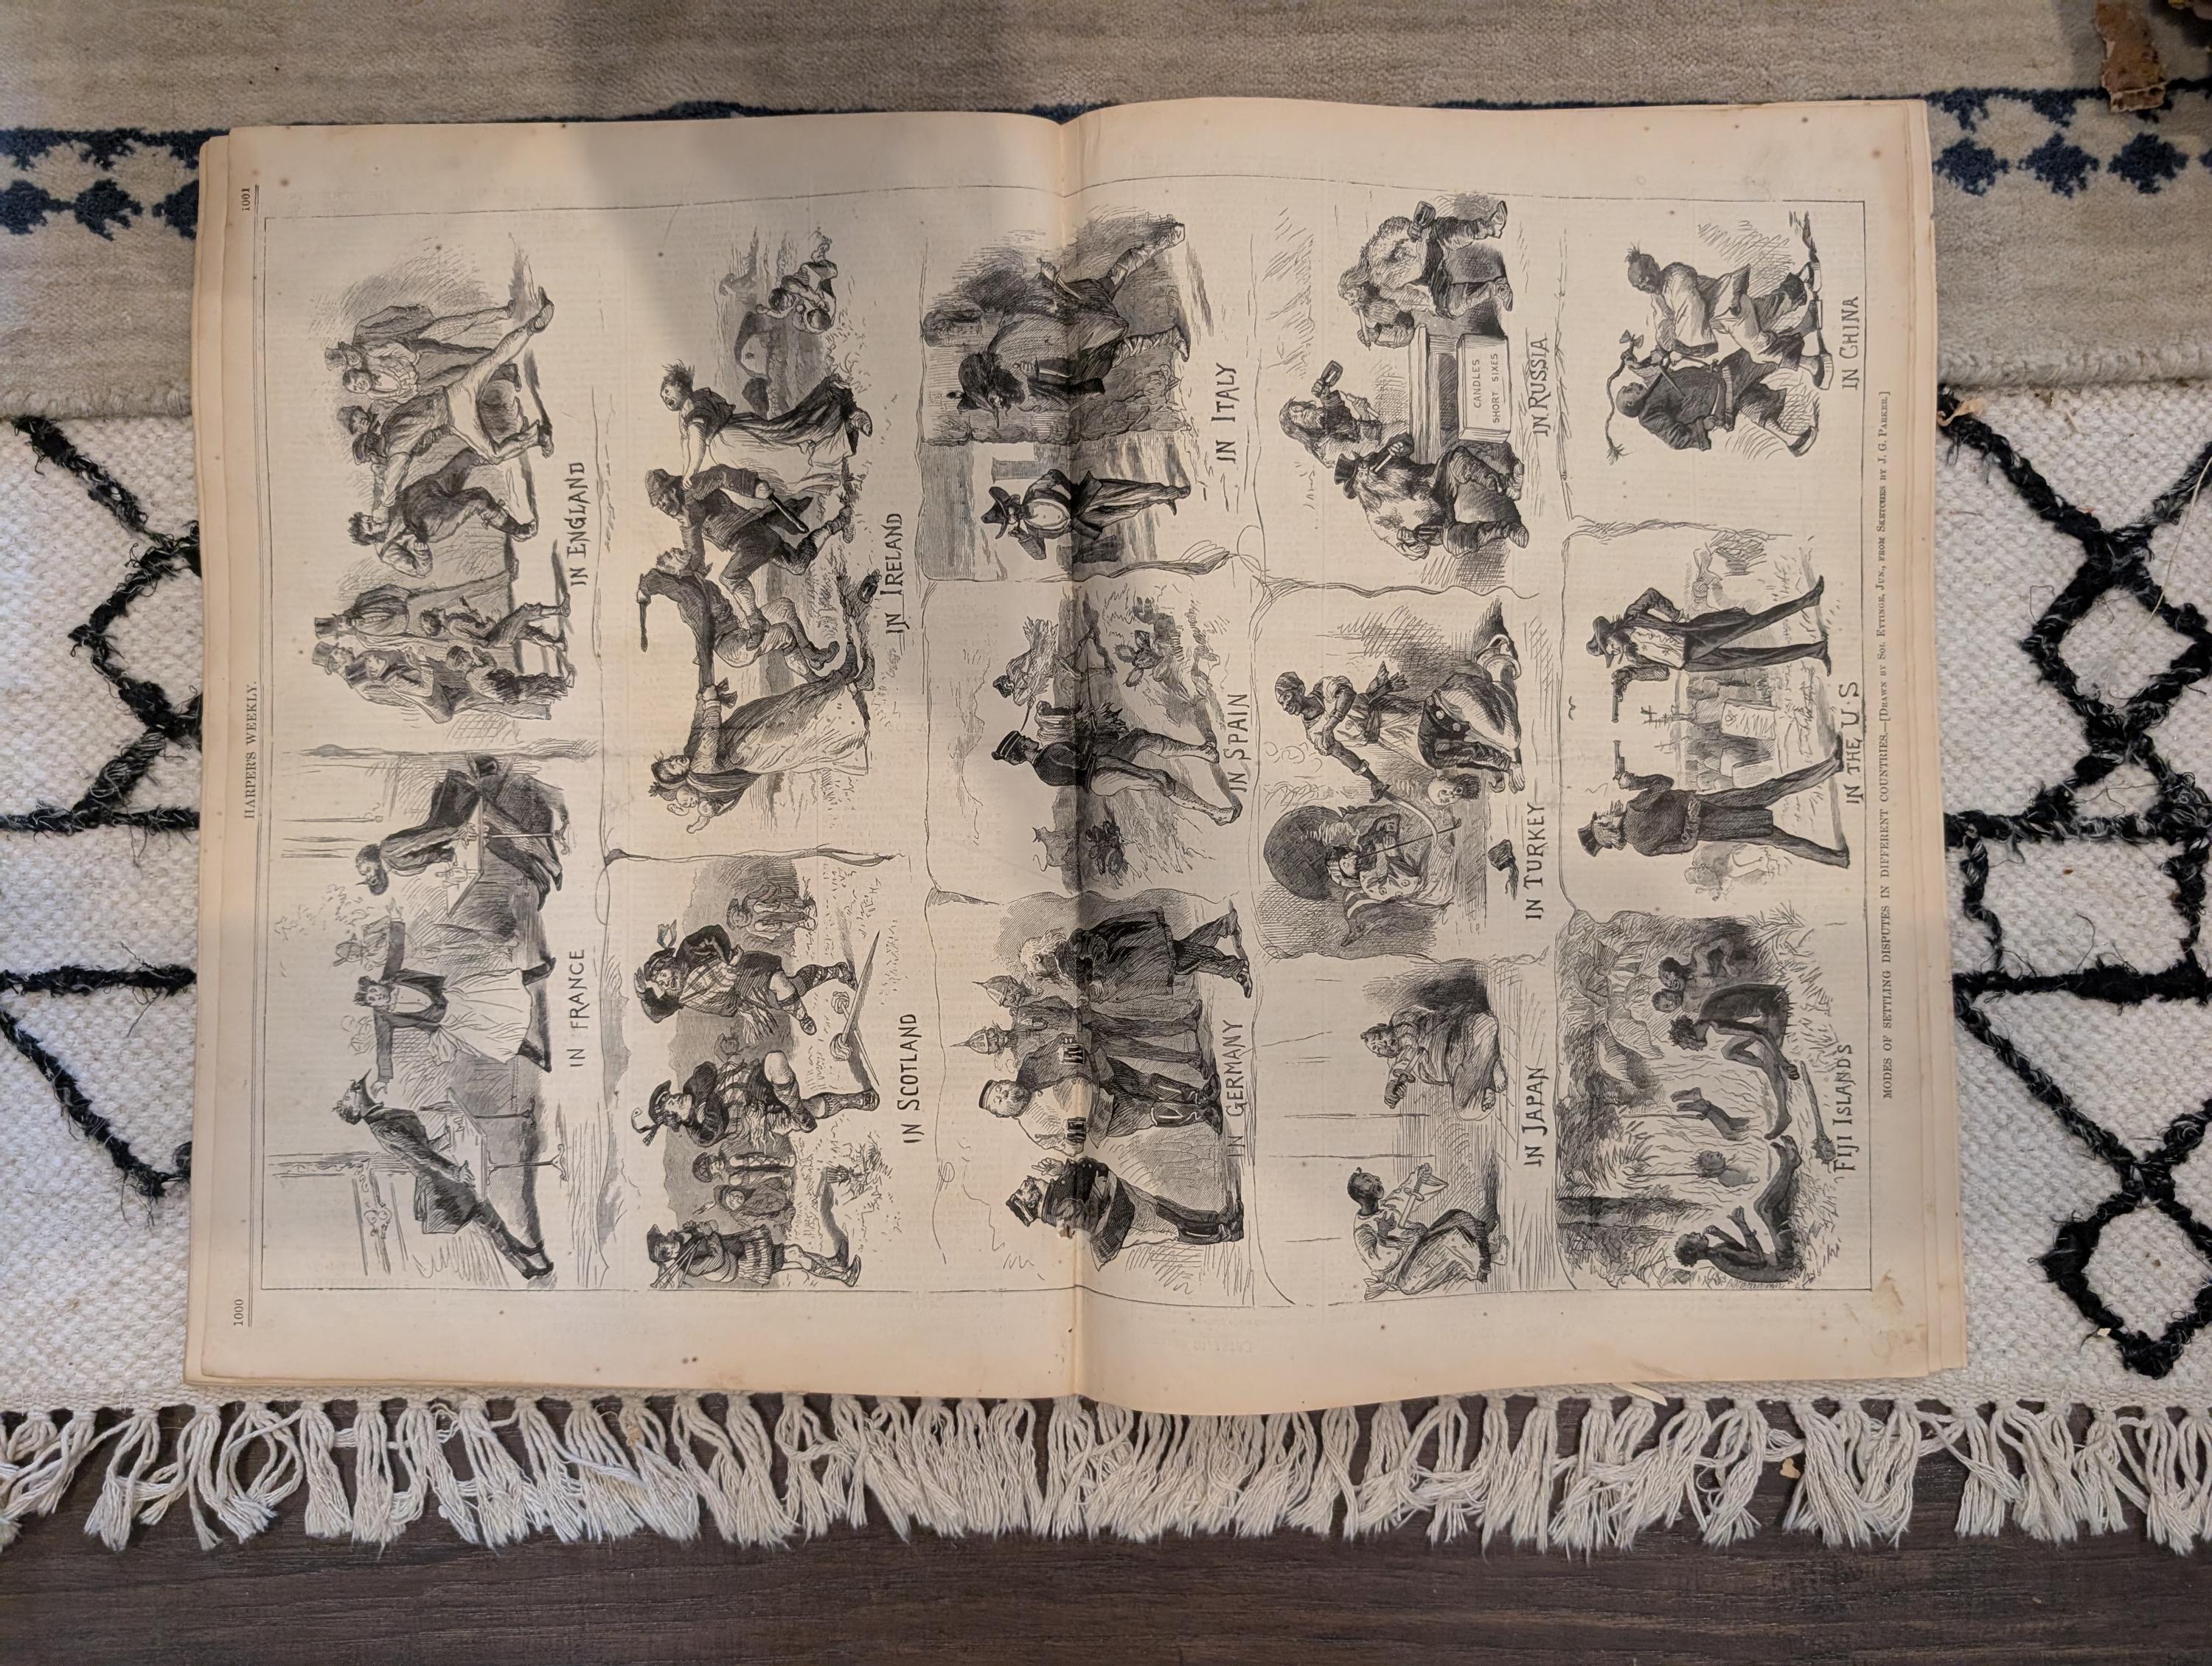 1000
HARPER'S WEEKLY.
1001
IN FRANCE
IN ENGLAND
IN SCOTLAND
IN IRELAND
IN GERMANY
IN SPAIN
IN ITALY
IN JAPAN
IN TURKEY
CANDLES
SHORT SIXES
IN RUSSIA
FIJI ISLANDS
IN THE U.S
IN CHINA
MODES OF SETTLING DISPUTES IN DIFFERENT COUNTRIES.—[DRAWN BY SOL EYTINGE, JUN., FROM SKETCHES BY J. G. PARKER.]